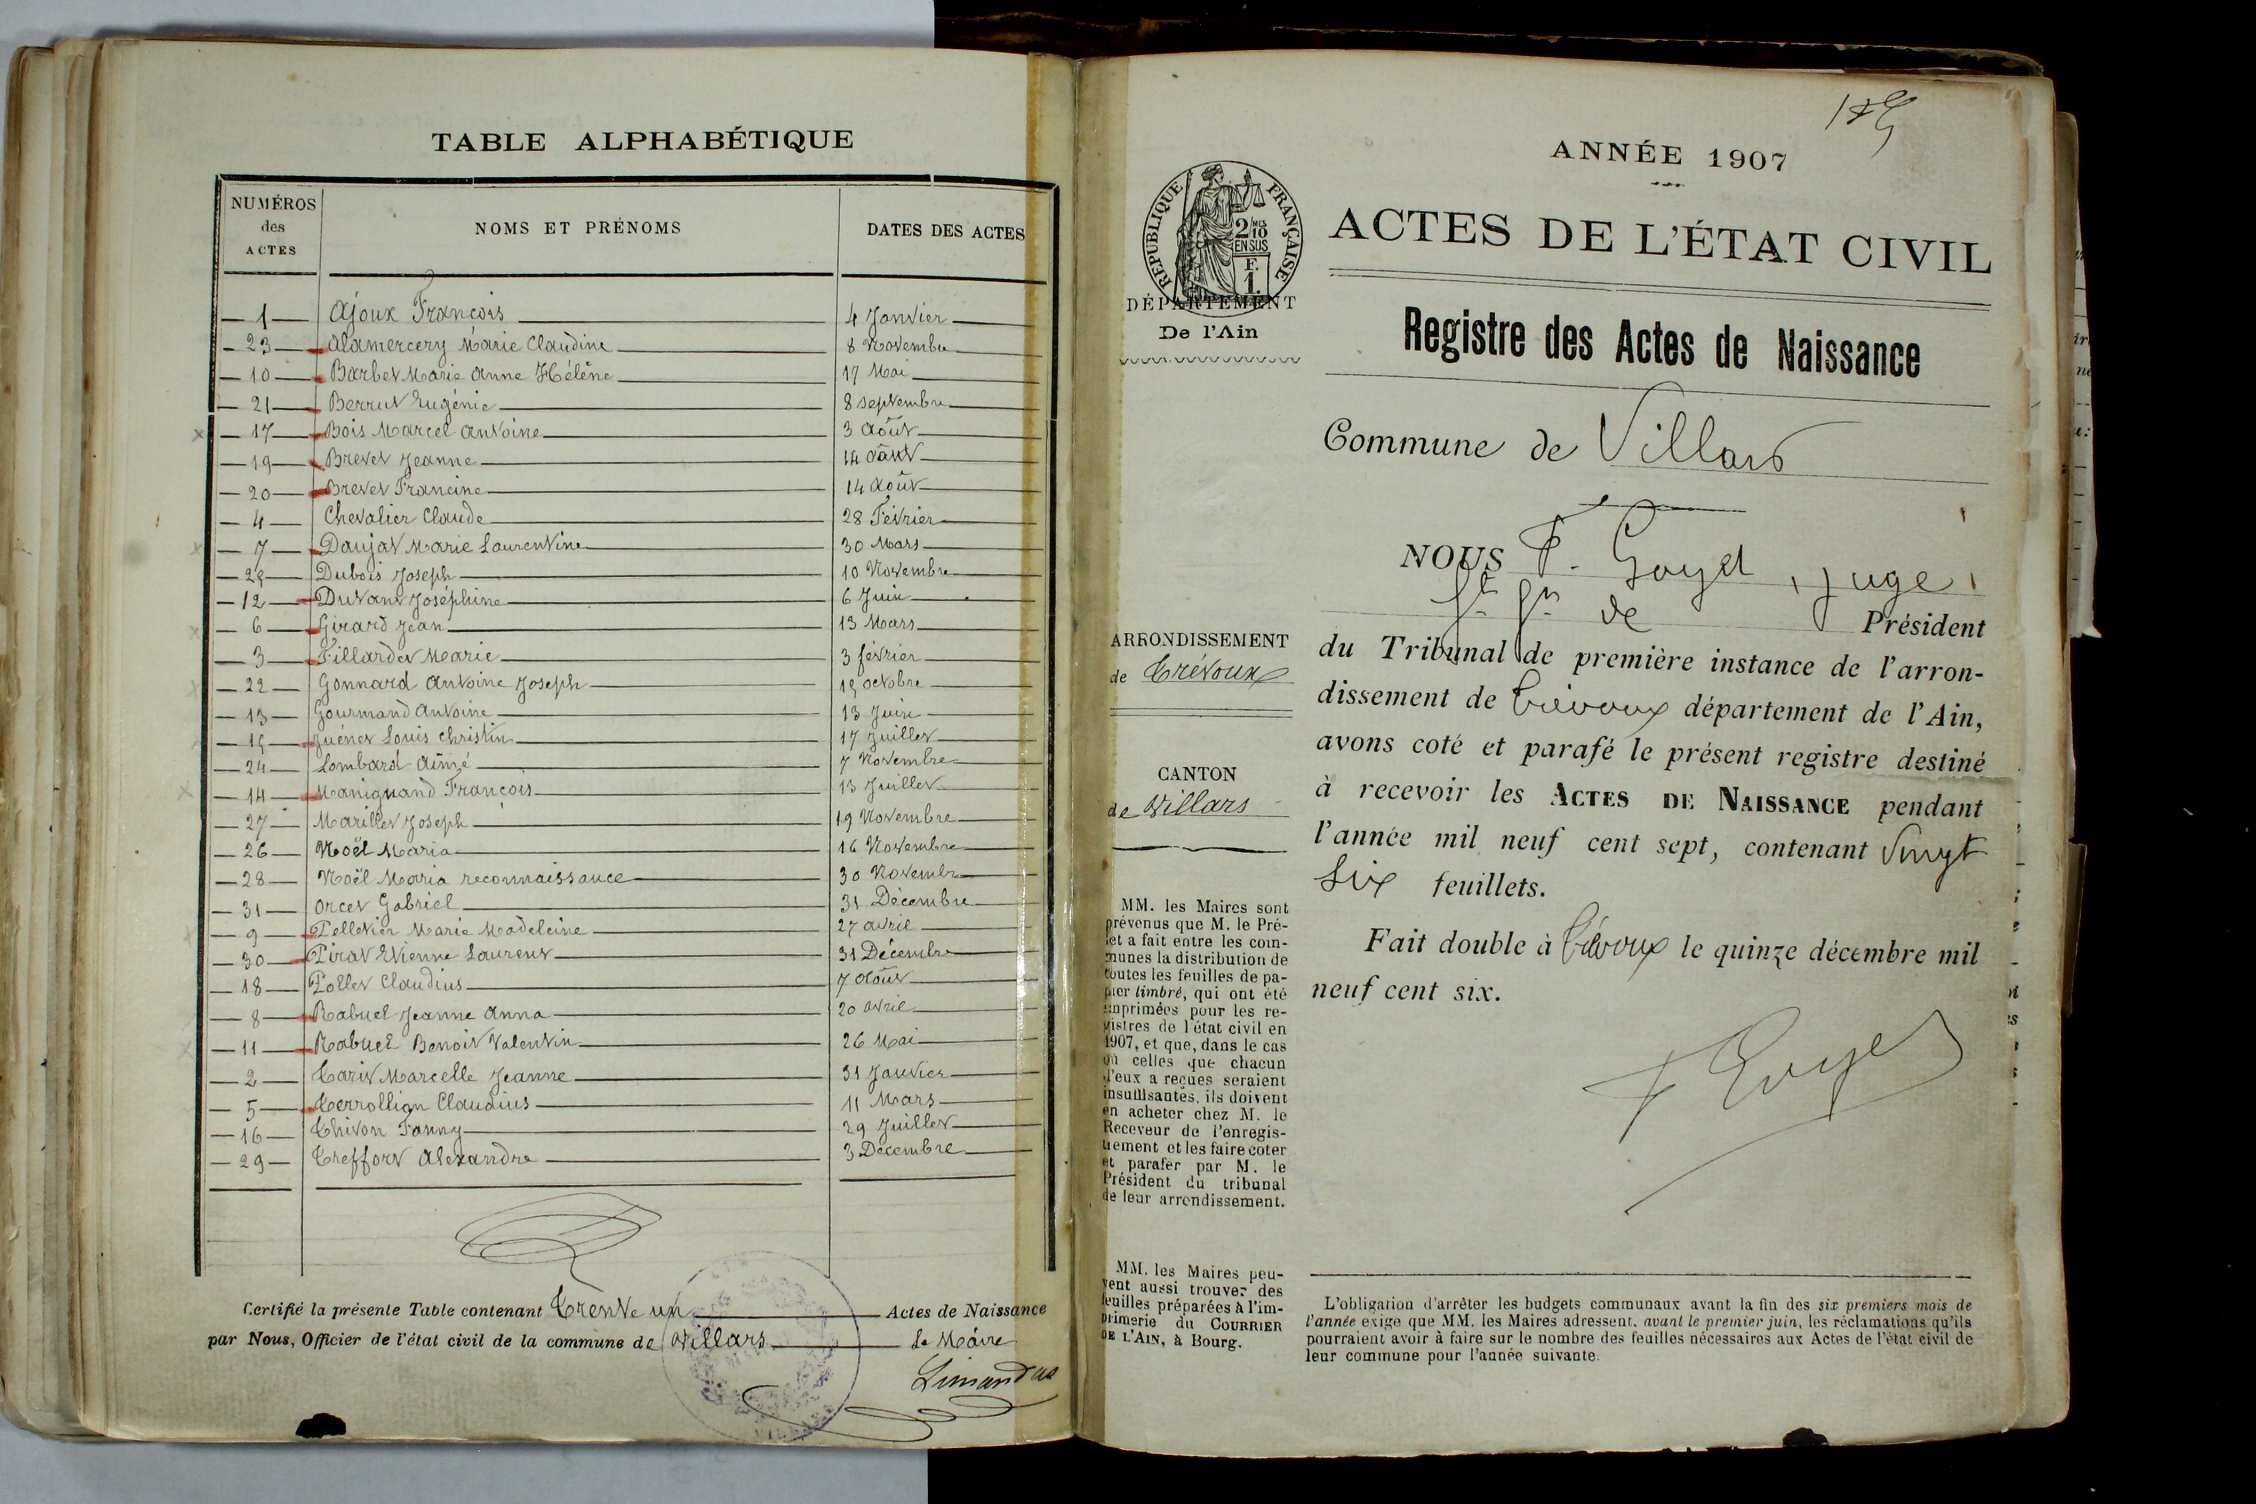 TABLE ALPHABÉTIQUE
NUMÉROS des ACTES
NOMS ET PRÉNOMS
DATES DES ACTES
1 Ajoux François 4 Janvier
23 Alamercery Marie Claudine 8 Novembre
10 Barbet Marie Anne Hélène 17 Mai
21 Berrut Eugénie 8 septembre
17 Bois Marcel Antoine 3 Août
19 Brevet Jeanne 14 Août
20 Brevet Francine 14 Août
4 Chevalier Claude 28 Février
7 Daujat Marie Laurentine 30 Mars
Dubois Joseph 10 Novembre
12 Durand Joséphine 6 Juin
6 Girard Jean 13 Mars
3 Fillardet Marie 3 février
22 Gonnard Antoine Joseph octobre
13 Gourmand Antoine 13 Juin
15 Guénet Louis Christin 17 Juillet
24 Lombard Aimé 7 Novembre
14 Manignand François 13 Juillet
27 Marillet Joseph 19 Novembre
26 Noël Maria 16 Novembre
28 Noël Maria reconnaissance 30 Novembre
31 Orcet Gabriel 31 Décembre
9 Pelletier Marie Madeleine 27 avril
30 Pirat Etienne Laurent 31 Décembre
18 Pollet Claudius 7 Août
8 Rabuel Jeanne Anna 20 avril
11 Rabuel Benoit Valentin 26 Mai
2 Tarit Marcelle Jeanne 31 Janvier
5 Terrollion Claudius 11 Mars
16 Thivon Fanny 29 Juillet
29 Treffort Alexandre 3 Décembre
Certifié la présente Table contenant Trente un Actes de Naissance
par Nous, Officier de l'état civil de la commune de Villars Le Maire
Limandas
ANNÉE 1907
RÉPUBLIQUE FRANÇAISE
2/10 EN SUS
F. 1.
ACTES DE L'ÉTAT CIVIL
DÉPARTEMENT
De l'Ain
Registre des Actes de Naissance
Commune de Villars
NOUS F. Goyet, juge,
de Président
ARRONDISSEMENT
de Trévoux
du Tribunal de première instance de l'arron-
dissement de Trévoux département de l'Ain,
avons coté et parafé le présent registre destiné
CANTON
de Villars
à recevoir les ACTES DE NAISSANCE pendant
l'année mil neuf cent sept, contenant Vingt
Six feuillets.
Fait double à Trévoux le quinze décembre mil
neuf cent six.
F Goyet
MM. les Maires sont
prévenus que M. le Pré-
fet a fait entre les com-
munes la distribution de
toutes les feuilles de pa-
pier timbré, qui ont été
imprimées pour les re-
gistres de l'état civil en
1907, et que, dans le cas
où celles que chacun
d'eux a reçues seraient
insuffisantes, ils doivent
en acheter chez M. le
Receveur de l'enregis-
trement et les faire coter
et parafer par M. le
Président du tribunal
de leur arrondissement.
MM. les Maires peu-
vent aussi trouver des
feuilles préparées à l'im-
primerie du COURRIER
DE L'AIN, à Bourg.
L'obligation d'arrêter les budgets communaux avant la fin des six premiers mois de
l'année exige que MM. les Maires adressent, avant le premier juin, les réclamations qu'ils
pourraient avoir à faire sur le nombre des feuilles nécessaires aux Actes de l'état civil de
leur commune pour l'année suivante.